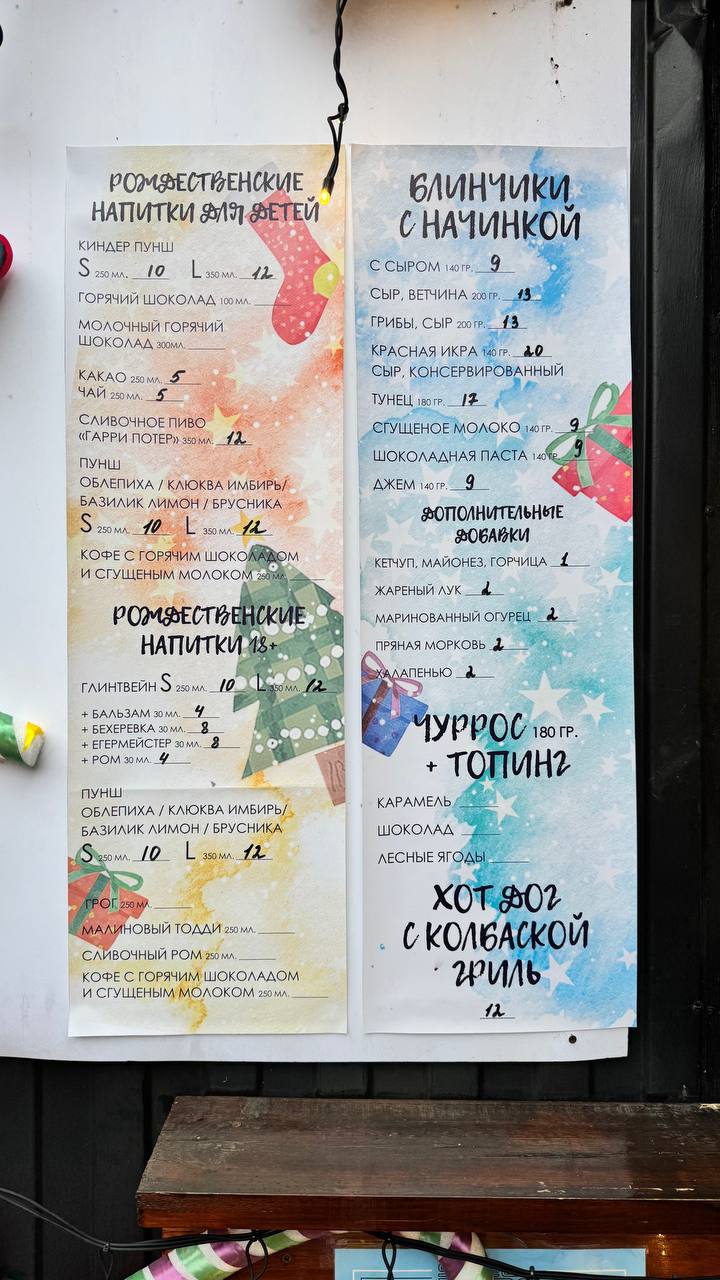 РОЖДЕСТВЕНСКИЕ
НАПИТКИ ДЛЯ ДЕТЕЙ
КИНДЕР ПУНШ
S 250 МЛ. 10 L 350 МЛ. 12
ГОРЯЧИЙ ШОКОЛАД 100 МЛ.
МОЛОЧНЫЙ ГОРЯЧИЙ
ШОКОЛАД 300МЛ.
КАКАО 250 МЛ. 5
ЧАЙ 250 МЛ. 5
СЛИВОЧНОЕ ПИВО
«ГАРРИ ПОТЕР» 350 МЛ. 12
ПУНШ
ОБЛЕПИХА / КЛЮКВА ИМБИРЬ/
БАЗИЛИК ЛИМОН / БРУСНИКА
S 250 МЛ. 10 L 350 МЛ. 12
КОФЕ С ГОРЯЧИМ ШОКОЛАДОМ
И СГУЩЕНЫМ МОЛОКОМ 250 МЛ.
РОЖДЕСТВЕНСКИЕ
НАПИТКИ 18+
ГЛИНТВЕЙН S 250 МЛ. 10 L 350 МЛ. 12
+ БАЛЬЗАМ 30 МЛ. 4
+ БЕХЕРЕВКА 30 МЛ. 8
+ ЕГЕРМЕЙСТЕР 30 МЛ. 8
+ РОМ 30 МЛ. 4
ПУНШ
ОБЛЕПИХА / КЛЮКВА ИМБИРЬ/
БАЗИЛИК ЛИМОН / БРУСНИКА
S 250 МЛ. 10 L 350 МЛ. 12
ГРОГ 250 МЛ.
МАЛИНОВЫЙ ТОДДИ 250 МЛ.
СЛИВОЧНЫЙ РОМ 250 МЛ.
КОФЕ С ГОРЯЧИМ ШОКОЛАДОМ
И СГУЩЕНЫМ МОЛОКОМ 250 МЛ.
БЛИНЧИКИ
С НАЧИНКОЙ
С СЫРОМ 140 ГР. 9
СЫР, ВЕТЧИНА 200 ГР. 13
ГРИБЫ, СЫР 200 ГР. 13
КРАСНАЯ ИКРА 140 ГР. 20
СЫР, КОНСЕРВИРОВАННЫЙ
ТУНЕЦ 180 ГР. 17
СГУЩЕНОЕ МОЛОКО 140 ГР. 9
ШОКОЛАДНАЯ ПАСТА 140 ГР. 9
ДЖЕМ 140 ГР. 9
ДОПОЛНИТЕЛЬНЫЕ
ДОБАВКИ
КЕТЧУП, МАЙОНЕЗ, ГОРЧИЦА 1
ЖАРЕНЫЙ ЛУК 2
МАРИНОВАННЫЙ ОГУРЕЦ 2
ПРЯНАЯ МОРКОВЬ 2
ХАЛАПЕНЬЮ 2
ЧУРРОС 180 ГР.
+ ТОПИНГ
КАРАМЕЛЬ
ШОКОЛАД
ЛЕСНЫЕ ЯГОДЫ
ХОТ ДОГ
С КОЛБАСКОЙ
ГРИЛЬ
12